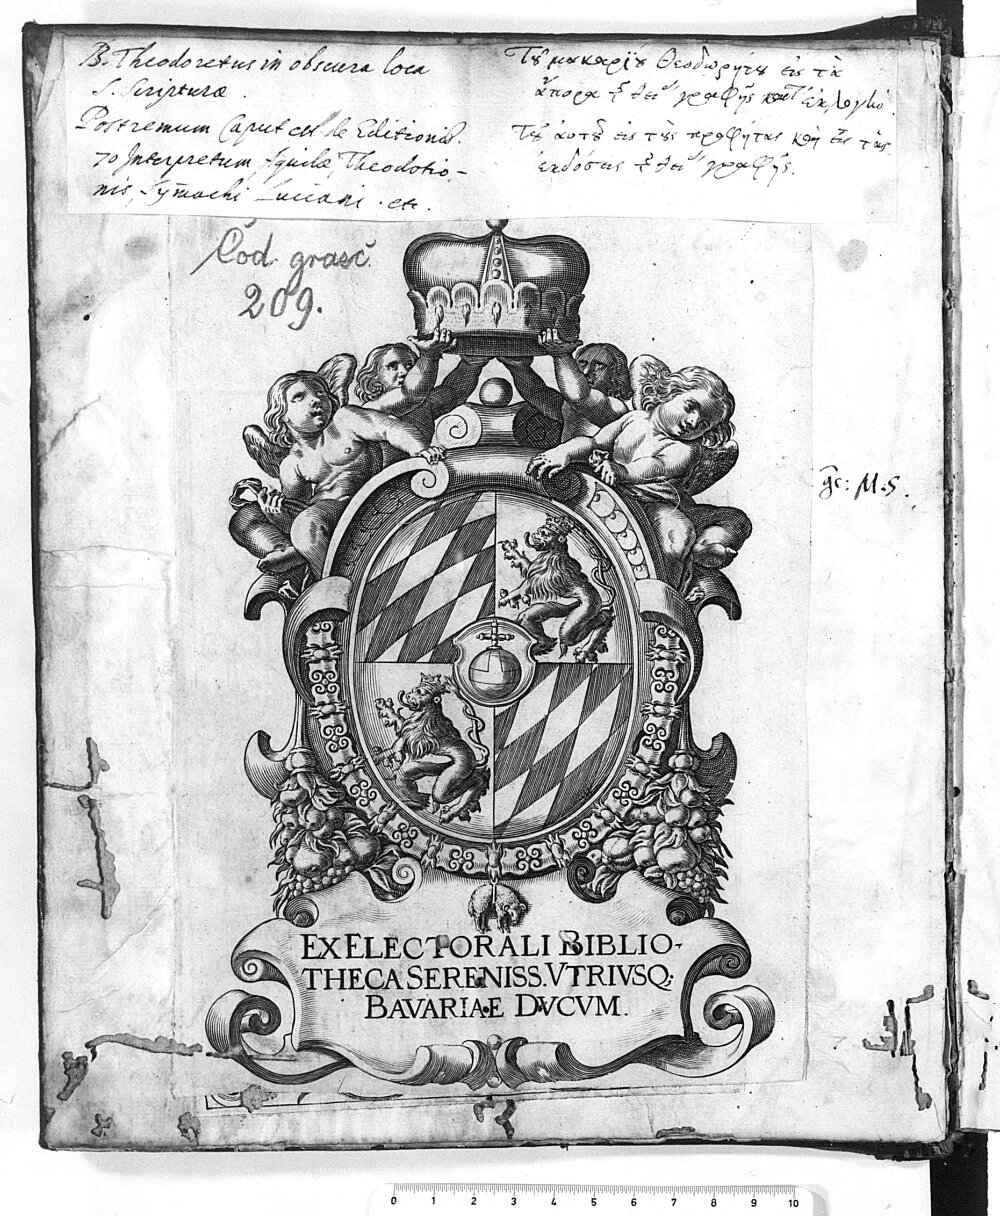 B. Theodoretus in obscura loca
S. Scripturæ.
Postremum Caput est de Editionib.
70 Interpretum Aquilæ, Theodotio-
nis, Sym̄achi Luciani. etc.
Τοῦ μακαρίου Θεοδωρήτου εἰς τὰ
ἄπορα τῆς θεί γραφῆς κατ' ἐκλογὴν
Τοῦ αὐτοῦ εἰς τοὺς προφήτας καὶ εἰς τὰς
ἐκδόσεις τῆς θεί γραφῆς.
Cod. graec.
209.
gc: M.S.
EX ELECTORALI BIBLIO-
THECA SERENISS. VTRIVSQ;
BAVARIAE DVCVM.
0 1 2 3 4 5 6 7 8 9 10